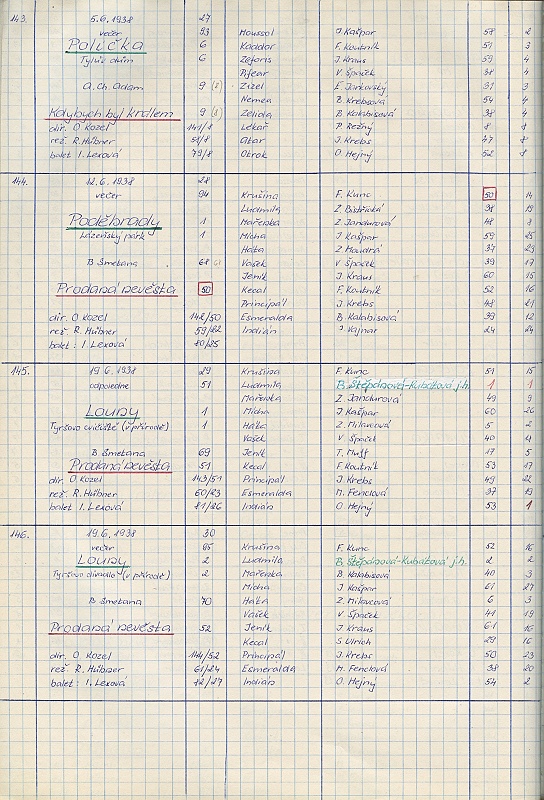 143. 5.6.1938 27
večer 93 Moussol J Kašpar 58 2
Polička 6 Kaddor F. Koutník 51 3
Tylův dům 6 Zefaris J. Kraus 59 4
Pifear V. Špaček 38 4
A. Ch. Adam 9 Zizel E Jankovský 31 3
Nemea B. Krebsová 54 4
Kdybych byl králem 9 Zelida B Kalabisová 38 4
dir. O Kozel 141/8 Lékař P. Režný 8 8
rež. R. Hübner 58/8 Atar J. Krebs 47 8
balet I. Lexová 79/8 Otrok O. Hejný 52 8
144. 12.6.1938 28
večer 94 Krušina F. Kunc 50 14
Ludmila Z. 38 19
Poděbrady 1 Mařenka Z. Jandurová 48 8
Lázeňský park 1 Mícha J Kašpar 59 25
Háta Z. Moudrá 37 23
B Smetana 68 Vašek V Špaček 39 17
Jeník J. Kraus 60 15
Prodaná nevěsta 50 Kecal F. Koutník 52 16
Principál J. Krebs 48 21
dir. O Kozel 142/50 Esmeralda B Kalabisová 39 12
rež. R. Hübner 59/22 Indián J. Vajnar 24 24
balet: I. Lexová 80/25
145. 19.6.1938 29 Krušina F. Kunc 51 15
odpoledne 51 Ludmila B. Štěpánová-Kubátová j.h. 1 1
Mařenka Z. Jandurová 49 9
Louny 1 Mícha J Kašpar 60 26
Tyršovo cvičiště (v přírodě) 1 Háta Z. Milavcová 5 2
Vašek V Špaček 40 4
B Smetana 69 Jeník T. Muff 17 5
Prodaná nevěsta 51 Kecal F Koutník 53 17
dir O Kozel 143/51 Principál J. Krebs 49 22
rež. R. Hübner 60/23 Esmeralda M. Fenclová 37 19
balet I. Lexová 81/26 Indián O. Hejný 53 1
146. 19.6.1938 30
večer 95 Krušina F. Kunc 52 16
Louny 2 Ludmila B. Štěpánová-Kubátová j.h. 2 2
Tyršovo divadlo (v přírodě) 2 Mařenka B. Kalabisová 40 3
Mícha J Kašpar 61 27
B Smetana 70 Háta Z Milavcová 6 3
Vašek V Špaček 41 19
Prodaná nevěsta 52 Jeník J Kraus 61 16
Kecal S Ulrich 29 16
dir. O. Kozel 144/52 Principál J. Krebs 50 23
rež. R. Hübner 61/24 Esmeralda M. Fenclová 38 20
balet: I. Lexová 82/27 Indián O. Hejný 54 2